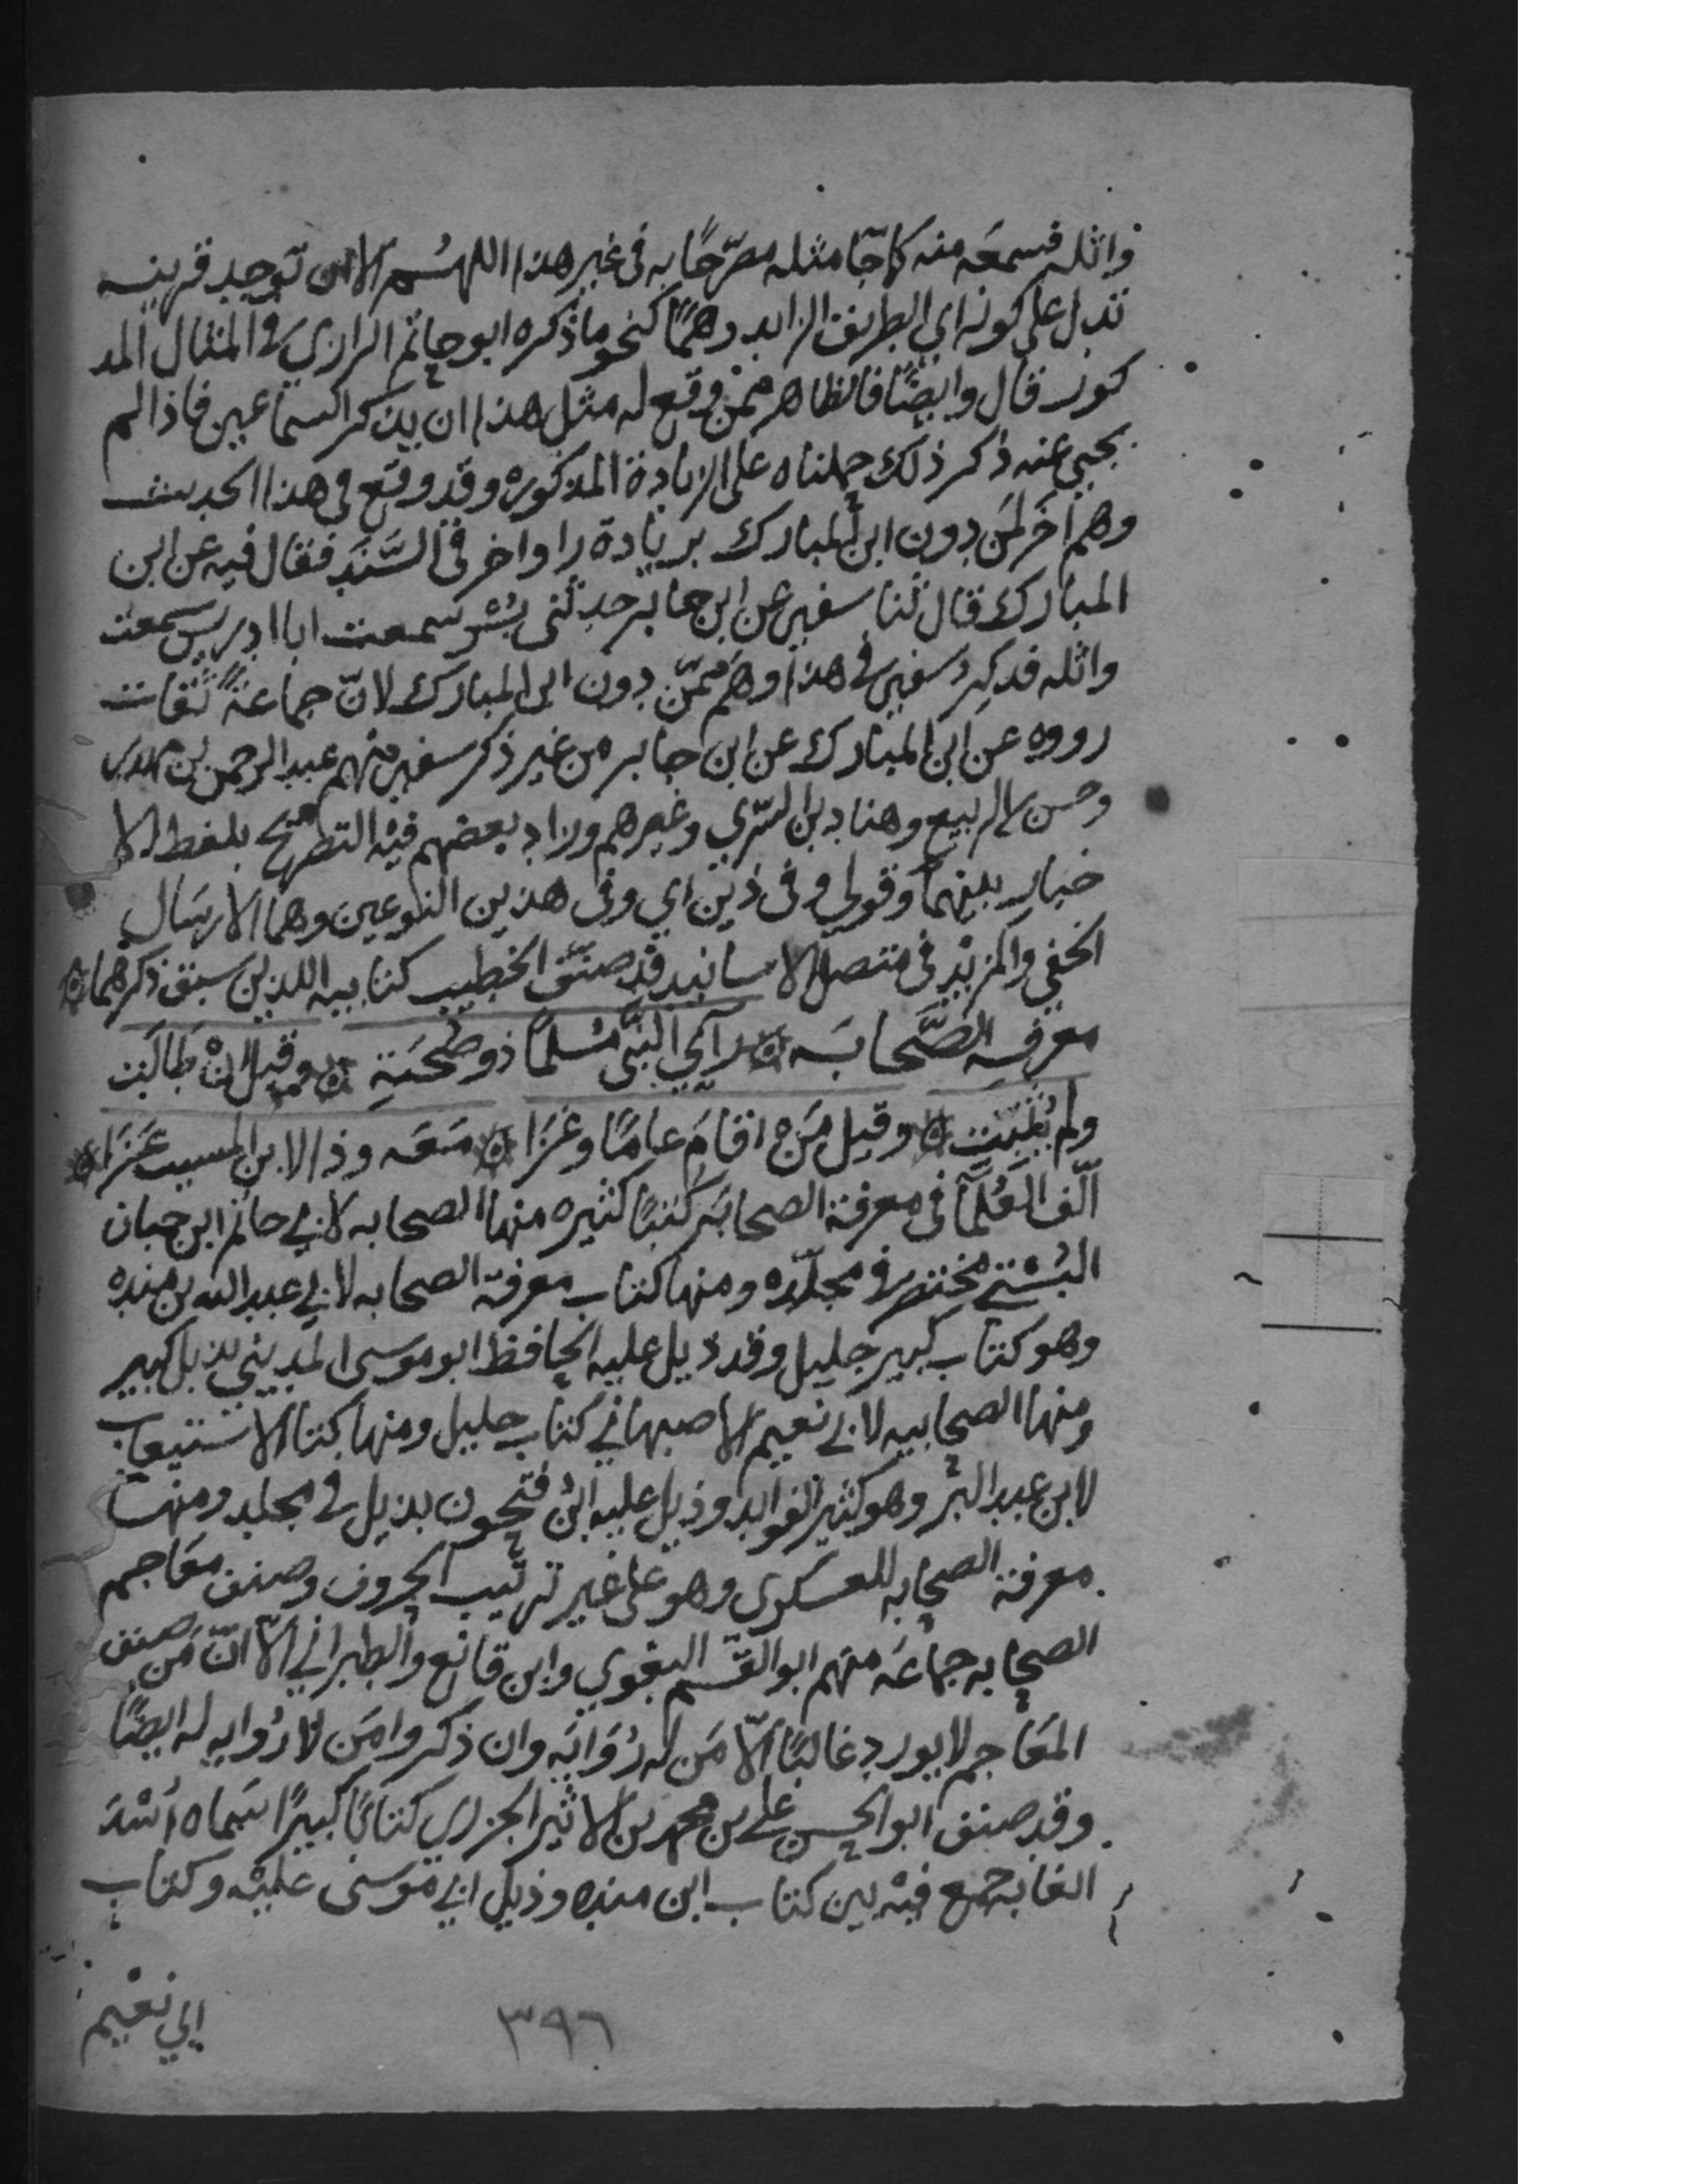 واثله فسمعه منه كما جآ مثله مصرّحًا به في غير هذا اللهسم الا ان توجد قرينه
تدل على كونه اي الطريق الزايد وهمًا كنحو ما ذكره ابو حاتم الرازي في المثال المذ
كور قال وايضًا فالظاهر ممن وقع له مثل هذا ان يذكر السماعين فاذا لم
يجيي عنه ذكر ذلك حملناه على الزيادة المذكوره وقد وقع في هذا الحديث
وهم اخر لمن دون ابن المبارك بزيادة راو اخر في السَّند فقال فيه عن ابن
المبارك قال ثنا سفين عن ابن جابر حدثني بسر سمعت ابا ادريس سمعت
واثله فذكر سفين في هذا وهم ممّن دون ابن المبارك لانّ جماعةً ثقات
رووه عن ابن المبارك عن ابن جابر من غير ذكر سفين منهم عبد الرحمن بن مهدي
وحسن بن الربيع وهناد بن السّري وغيرهم وزاد بعضهم فيه التصريح بلفظ الا
خبار بينهما وقولي وفي ذين اي وفي هذين النوعين وهما الارسال
الخفي والمزيد في متصل الاسانيد قد صنّف الخطيب كتابيه اللذين سبق ذكرهما ه
معرفه الصَّحابَه ه رآى النبي مُسلمًا ذو صُحبَةِ ه وقيل انْ طَالَت
ولم يُثبَّت ه وقيل مَن اقامَ عامًا وغَزَا ه مَعَه وذا لابن المسيب عَزَا ه
الّف العُلَمآ في معرفة الصحابَه كُتبًا كثيره منها الصحابه لابي حاتم ابن حبان
البُستي مختصر في مجلّده ومنها كتاب معرفة الصحابه لابي عبد الله بن منده
وهو كتاب كبير جليل وقد ذيل عليه الحافظ ابو موسى المديني بذيل كبير
ومنها الصحابيه لابي نعيم الاصبهاني كتاب جليل ومنها كتاب الاستيعاب
لابن عبد البر وهو كثير الفوايد وذيل عليه ابن فتحون بذيل في مجلد ومنها
معرفة الصحابه للعسكري وهو على غير ترتيب الحروف وصنف معاجم
الصحابه جماعَه منهم ابو القسم البغوي وابن قانع والطبراني الّا انّ مَن صنف
المعَاجم لا يورد غالبًا الّا مَن له رُوَايَه وان ذكروا مَن لا رُوايه له ايضًا
وقد صنف ابو الحسن علي بن محمد بن الاثير الجزري كتابًا كبيرًا سَماه اُسْدَ
الغابه جمع فيْه بين كتاب ابن منده وذيل ابي موسى عليْه وكتاب
ابي نعيم
٣٩٦